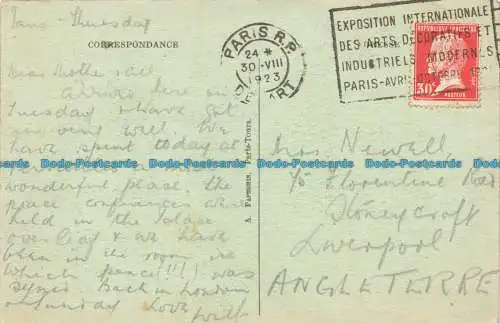 Paris - Thursday
CORRESPONDANCE
Dear Mother & all
Arrived here on
Tuesday & have got
on very well. We
have spent today at
Versailles a most
wonderful place. The
peace conferences were
held in the place
over leaf & we have
been in the room in
which peace (!!!) was
signed. Back in London
on Sunday Love
with
PARIS R.P.
24 *
30 · VIII
1923
DÉPART
EXPOSITION INTERNATIONALE
DES ARTS DÉCORATIFS ET
INDUSTRIELS MODERNES
PARIS-AVRIL OCTOBRE
30c
POSTES
A. PAPEGHIN, Paris-Tours.
Mrs Newell,
c/o Florentine Road
Stoneycroft
Liverpool
ANGLETERRE
DaB-Postcards